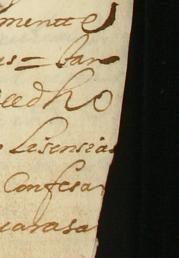 mentte
as = bar
eedho
Lisensia
Confesar
carasa